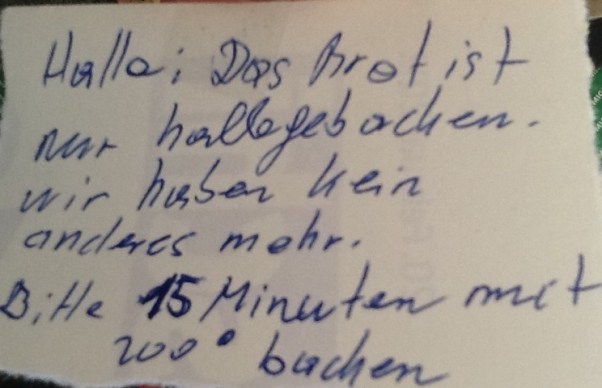 Hallo; Das Brot ist
nur halbgebacken.
wir haben kein
anderes mehr.
Bitte 15 Minuten mit
200° backen